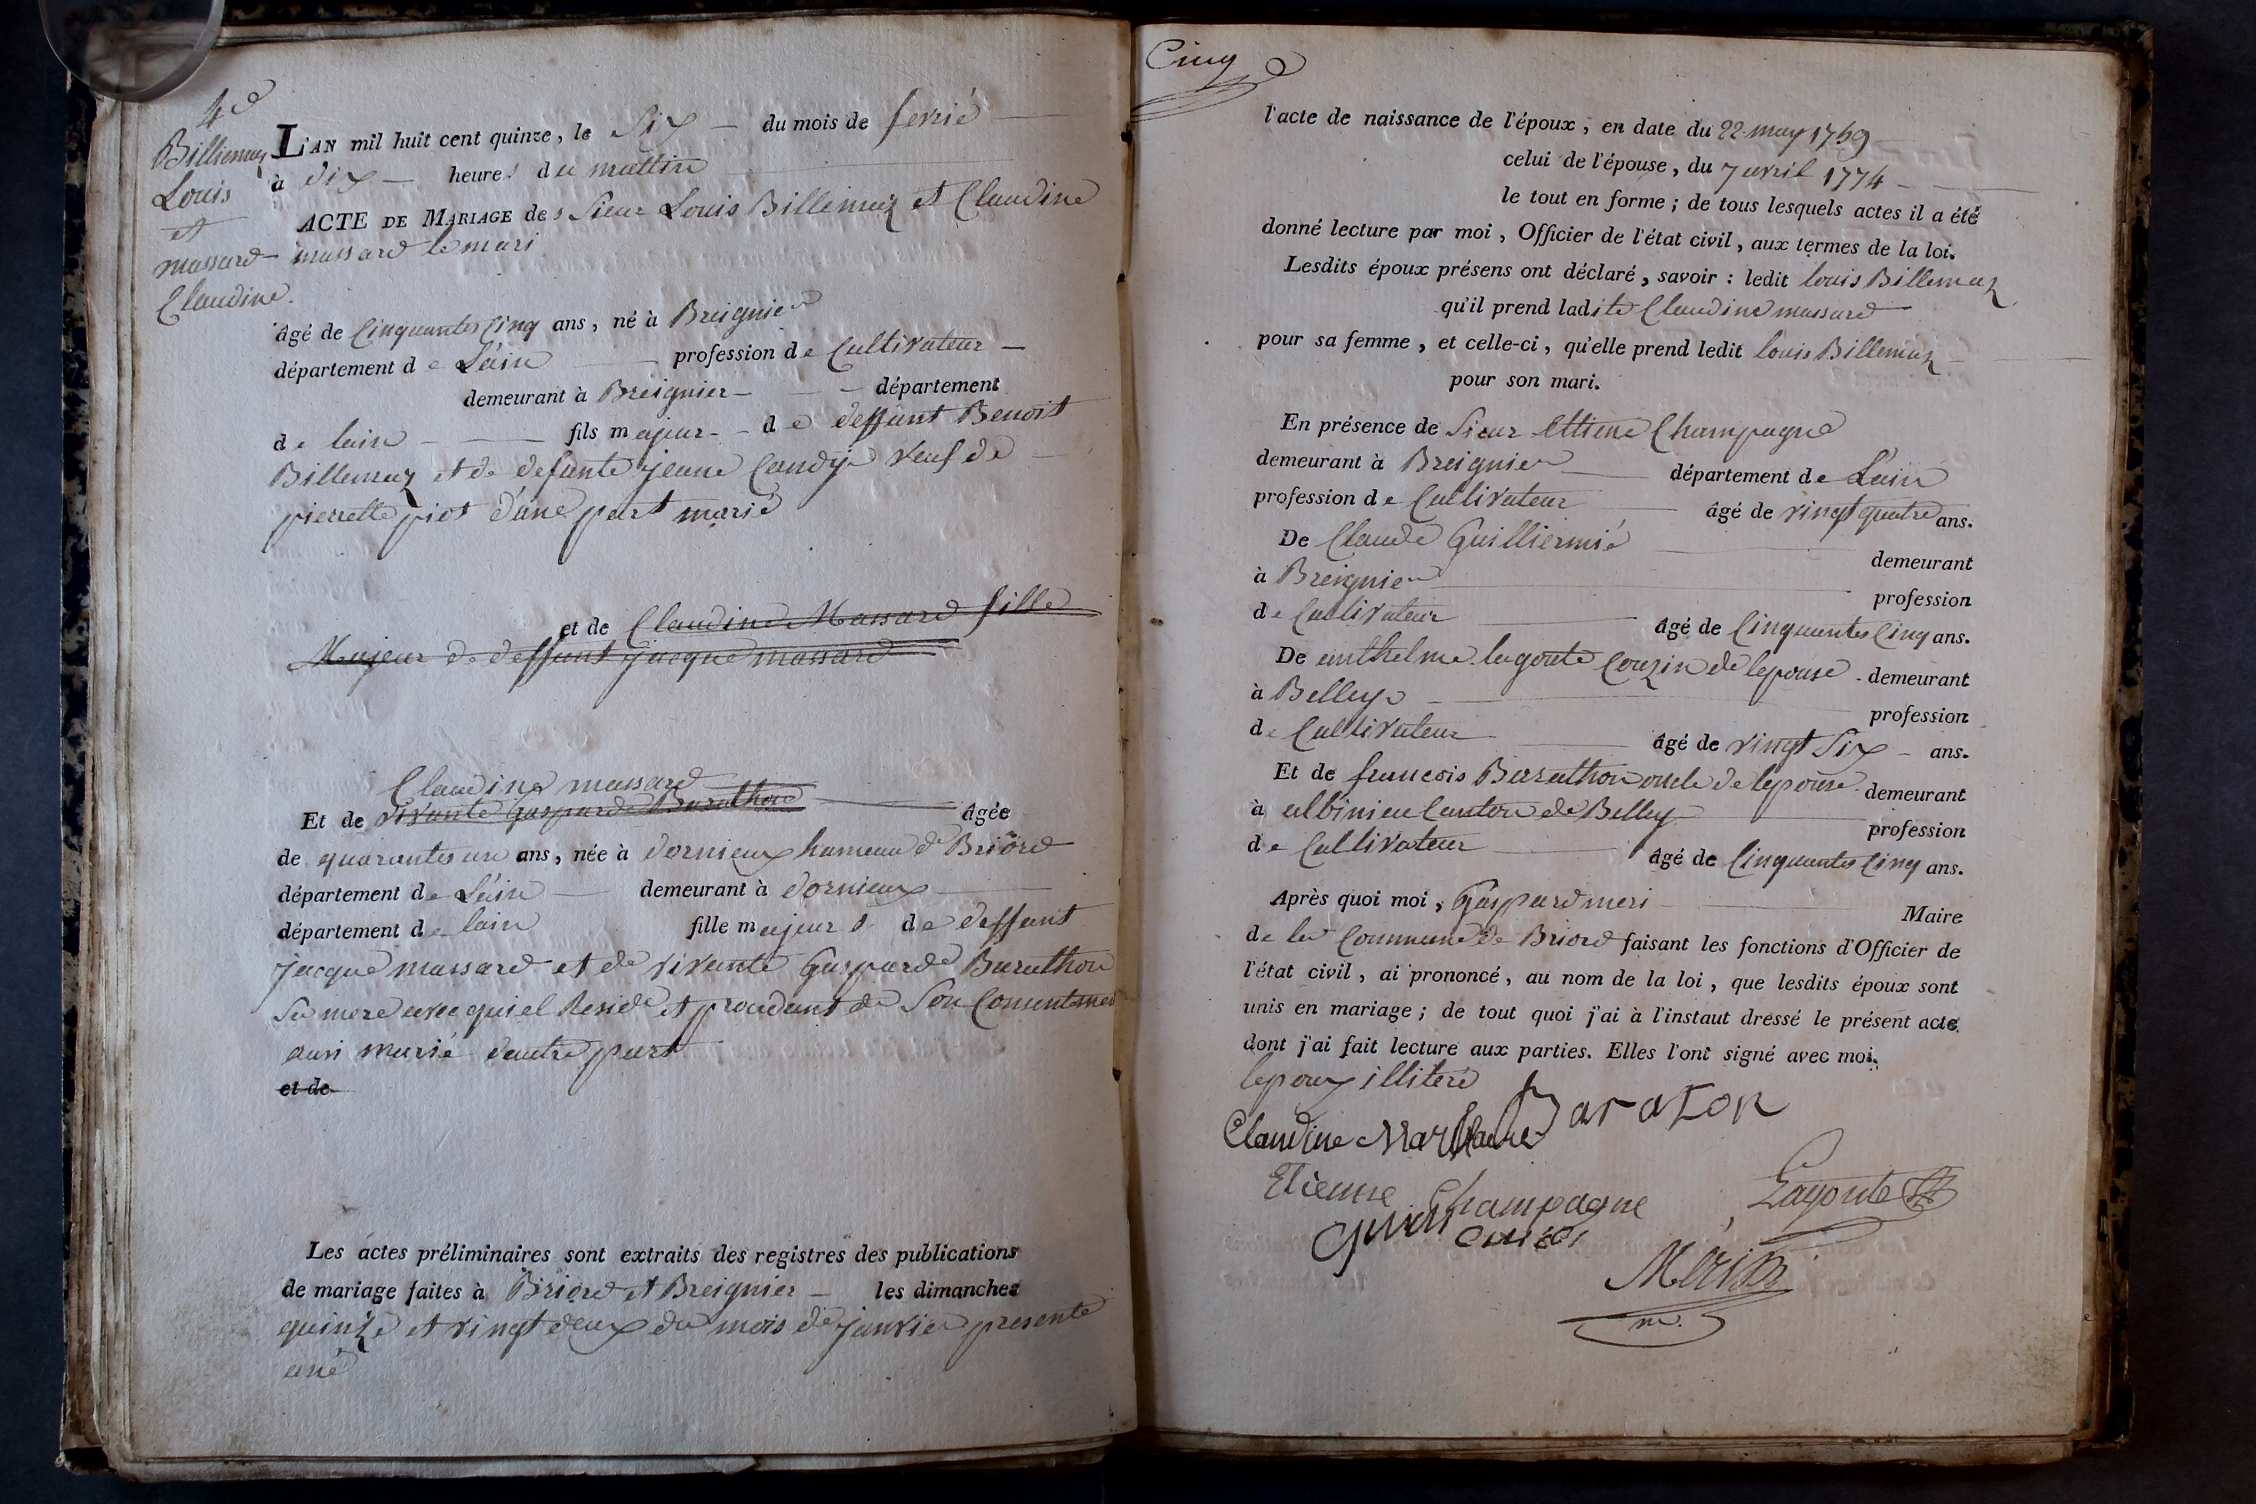 4e
Billiemaz
Louis
et
massard
Claudine.
L'AN mil huit cent quinze, le Six du mois de fevrié
à dix heures du mattin
ACTE DE MARIAGE des Sieur Louis Billemaz et Claudine
massard le mari
âgé de Cinquantes Cinq ans, né à Breignier
département de Lain profession de Cultivateur
demeurant à Breignier département
de lain fils majeur de deffunt Benoit
Billemaz et de defunte jeane Candy veuf de
pierrette piot d'une part marié
et de Claudine Massard fille
Majeur de deffunt jacque massard
Claudine massard
Et de vivante gasparde Barathon âgée
de quarantes un ans, née à dornieux hameau de Briord
département de Lain demeurant à dornieux
département de lain fille majeure de deffunt
jacque massard et de vivante Gasparde Barathon
Sa mere avec qui el Reside et procedant de Son Consentemen
ausi marié dautre part
et de
Les actes préliminaires sont extraits des registres des publications
de mariage faites à Briord et Breignier les dimanches
quinze et vingt deux du mois de janvier presente
ané
Cinq
l'acte de naissance de l'époux, en date du 22 may 1759
celui de l'épouse, du 7 avril 1774
le tout en forme; de tous lesquels actes il a été
donné lecture par moi, Officier de l'état civil, aux termes de la loi.
Lesdits époux présens ont déclaré, savoir: ledit louis Billemaz
qu'il prend ladite Claudine massard
pour sa femme, et celle-ci, qu'elle prend ledit louis Billemaz
pour son mari.
En présence de Sieur Ettiene Champagne
demeurant à Breignier département de Lain
profession de Cultivateur âgé de vingt quatre ans.
De Claude Guilliermié demeurant
à Breignier profession
de Cultivateur âgé de Cinquantes Cinq ans.
De anthelme lagoute Couzin de lepouse demeurant
à Belley profession
de Cultivateur âgé de vingt Six ans.
Et de francois Barathon oncle de lepouse demeurant
à albinieu Canton de Belley profession
de Cultivateur âgé de Cinquantes Cinq ans.
Après quoi moi, Gaspard meri Maire
de la Commune de Briord faisant les fonctions d'Officier de
l'état civil, ai prononcé, au nom de la loi, que lesdits époux sont
unis en mariage; de tout quoi j'ai à l'instaut dressé le présent acte
dont j'ai fait lecture aux parties. Elles l'ont signé avec moi.
lepoux illiteré
Baraton
Claudine
Etienne Champagne
Lagoute
m.